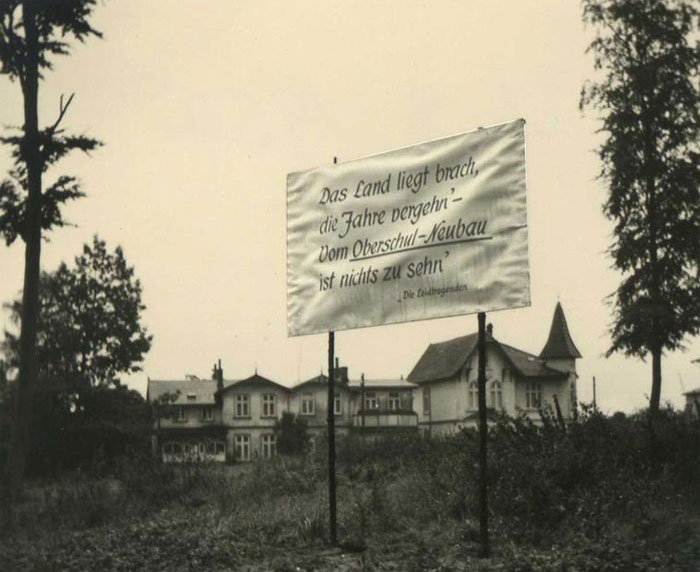 Das Land liegt brach,
die Jahre vergehn'–
Vom Oberschul-Neubau
ist nichts zu sehn'
„Die Leidtragenden